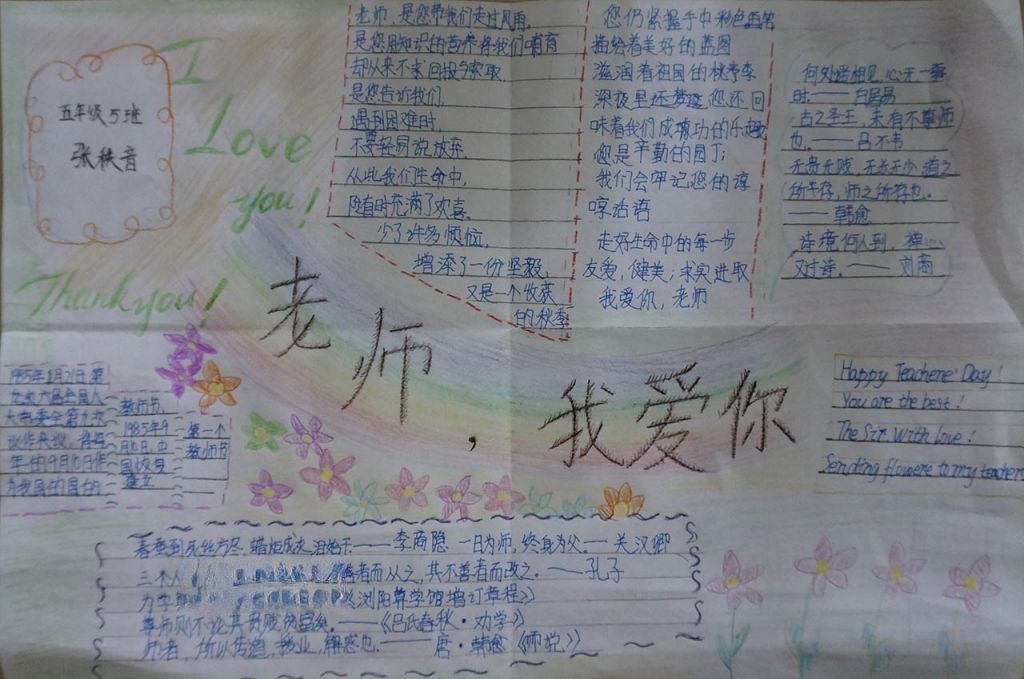 五年级5班
张秩音
I
Love
you!
Thank you!
老师，是您带我们走过风雨，
是您用知识的营养将我们哺育
却从来不求回报与索取
是您告诉我们，
遇到困难时，
不要轻易说放弃
从此我们生命中，
随时充满了欢喜。
少了许多烦恼，
增添了一份坚毅，
又是一个收获
的秋季
您仍紧握手中彩色画笔
描绘着美好的蓝图
滋润着祖国的桃李
深夜里还梦 您还回
味着我们成功的乐趣
您是辛勤的园丁；
我们会牢记您的谆
谆话语
走好生命中的每一步
友爱，健美，求实进取
我爱你，老师
何处 相见，心无一事
时。——白居易
古之圣王，未有不尊师
也。——吕不韦
无贵无贱，无长无少，道之
所存，师之所存也。
——韩愈
诗境何人到，禅心
又过诗。——刘商
老师，我爱你
1985年1月21日第
六届全国人
大常委会第九次
年的9月10日作
为我国的
教师节
1985年9
月10日
建立
第一个
教师节
Happy Teachere' Day!
You are the best!
The Sit With love!
Sending flowere to my teacher
春蚕到死丝方尽，蜡炬成灰泪始干——李商隐 一日为师，终身为父。——关汉卿
三个人 善者而从之，其不善者而改之。——孔子
为学 《浏阳算学馆增订章程》
尊师则不论其贵贱贫富矣。——《吕氏春秋·劝学》
师者，所以传道，授业，解惑也。——唐·韩愈《师说》